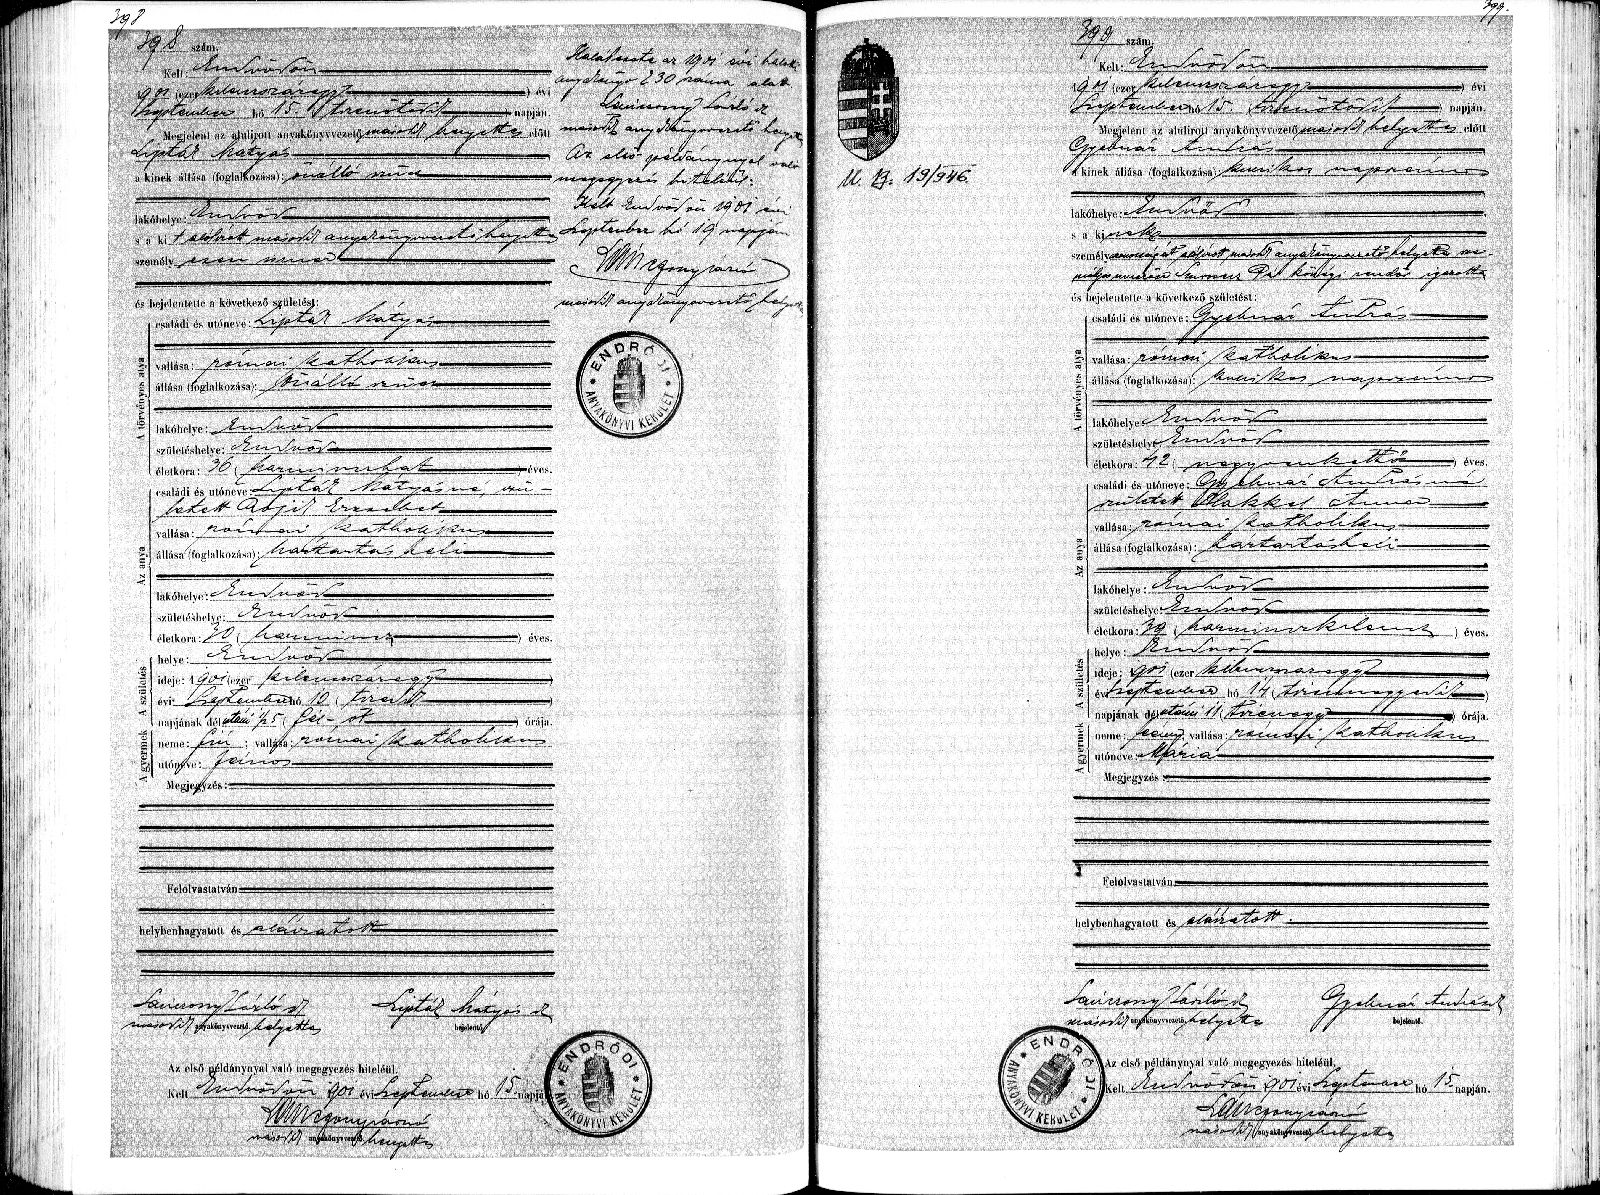 398
398 szám.
Kelt: Endrődön
1901 (ezer kilenczszázegy) évi
Szeptember hó 15. (tizenötödik) napján.
Megjelent az alulirott anyakönyvvezető második helyettes előtt
Lipták Mátyás
a kinek állása (foglalkozása): önálló
lakóhelye: Endrőd
s a kit alólirott második anyakönyvvezető helyettes
személyesen ismer
és bejelentette a következő születést:
A törvényes atya
családi és utóneve: Lipták Mátyás
vallása: római katholikus
állása (foglalkozása): önálló
lakóhelye: Endrőd
születéshelye: Endrőd
életkora: 36 (harminczhat) éves.
Az anya
családi és utóneve: Lipták Mátyásné, szü-
letett Erzsébet
vallása: római katholikus
állása (foglalkozása): háztartásbeli
lakóhelye: Endrőd
születéshelye: Endrőd
életkora: 30 (harmincz) éves.
A születés
helye: Endrőd
ideje: 1901 (ezer kilenczszázegy)
évi Szeptember hó 10 (tizedik)
napjának délutáni ½5 (fél-öt) órája.
A gyermek
neme: fiú; vallása: római katholikus
utóneve: János
Megjegyzés:
Felolvastatván
helybenhagyatott és aláiratott
Lánczonyi László sk Lipták Mátyás sk
második anyakönyvvezető helyettes bejelentő.
Az első példánynyal való megegyezés hiteléül.
Kelt Endrődön 1901 évi Szeptember hó 15. napján
második anyakönyvvezető helyettes
ENDRŐDI ANYAKÖNYVI KERÜLET
Halálesete az 1901 évi halotti
anyakönyv 230 száma alatt
Lánczonyi László sk
másodk anyakönyvvezető helyettes
Az első példánynyal való
megegyezés hiteléül:
Kelt Endrődön 1901 évi
Szeptember hó 19 napján
második anyakönyvvezető helyettes
ENDRŐDI ANYAKÖNYVI KERÜLET
399.
399 szám.
Kelt: Endrődön
1901 (ezer kilenczszázegy) évi
Szeptember hó 15. (tizenötödik) napján.
Megjelent az alulirott anyakönyvvezető második helyettes előtt
Gyebnár András
a kinek állása (foglalkozása): kubikos napszámos
lakóhelye: Endrőd
s a kinek
személyazonosságát alólirott másodk anyakönyvvezető helyettes
községi rendőr igazolta
és bejelentette a következő születést:
A törvényes atya
családi és utóneve: Gyebnár András
vallása: római katholikus
állása (foglalkozása): kubikos napszámos
lakóhelye: Endrőd
születéshelye: Endrőd
életkora: 42 (negyvenkettő) éves.
Az anya
családi és utóneve: Gyebnár Andrásné
született Hakkel Anna
vallása: római katholikus
állása (foglalkozása): háztartásbeli
lakóhelye: Endrőd
születéshelye: Endrőd
életkora: 39 (harminczkilencz) éves.
A születés
helye: Endrőd
ideje: 1901 (ezer kilenczszázegy)
évi Szeptember hó 14 (tizennegyedik)
napjának délutáni 11 (tizenegy) órája.
A gyermek
neme: leány, vallása: római katholikus
utóneve: Mária
Megjegyzés:
Felolvastatván
helybenhagyatott és aláiratott.
Lánczonyi László sk Gyebnár András sk
második anyakönyvvezető helyettes bejelentő.
Az első példánynyal való megegyezés hiteléül,
Kelt Endrődön 1901 évi Szeptember hó 15. napján.
második anyakönyvvezető helyettes
ENDRŐDI ANYAKÖNYVI KERÜLET
19/946